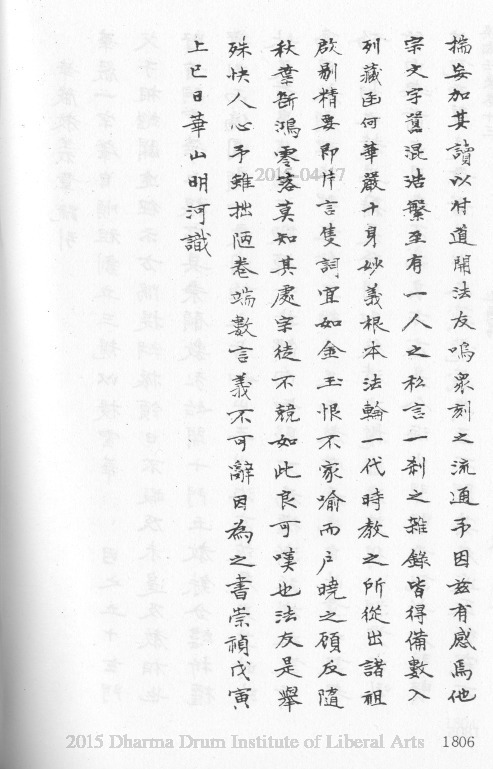 揣妄加其讀以付道開法友嗚衆刻之流通予因茲有感焉他
宗文字混浩繁至有一人之私言一剎之雜錄皆得備數入
列藏函何華嚴十身妙義根本法輪一代時教之所從出諸祖
啟剔精要即片言隻詞宜如金玉恨不家喻而戶曉之顧反隨
秋葉斷鴻零落莫知其處宗徒不競如此良可嘆也法友是舉
殊快人心予雖拙陋卷端數言義不可辭因為之書崇禎戊寅
上巳日華山明河識
2015-04-17
2015 Dharma Drum Institute of Liberal Arts
1806